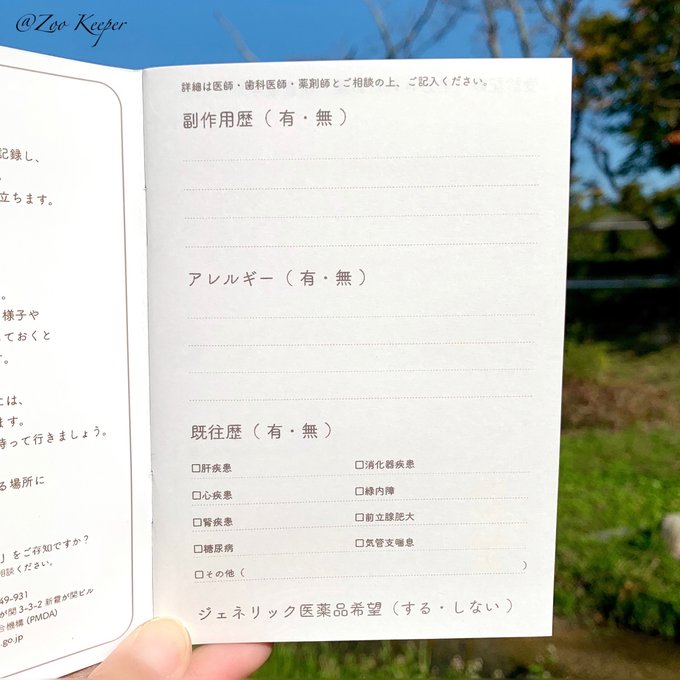 @Zoo Keeper
記録し、
立ちます。
。
様子や
ておくと
す。
には、
ます。
持って行きましょう。
る場所に
」をご存知ですか？
相談ください。
49-931
が関 3-3-2 新霞が関ビル
合機構 (PMDA)
.go.jp
詳細は医師・歯科医師・薬剤師とご相談の上、ご記入ください。
副作用歴（ 有・無 ）
アレルギー（ 有・無 ）
既往歴（ 有・無 ）
□肝疾患 □消化器疾患
□心疾患 □緑内障
□腎疾患 □前立腺肥大
□糖尿病 □気管支喘息
□その他（ ）
ジェネリック医薬品希望（する・しない ）